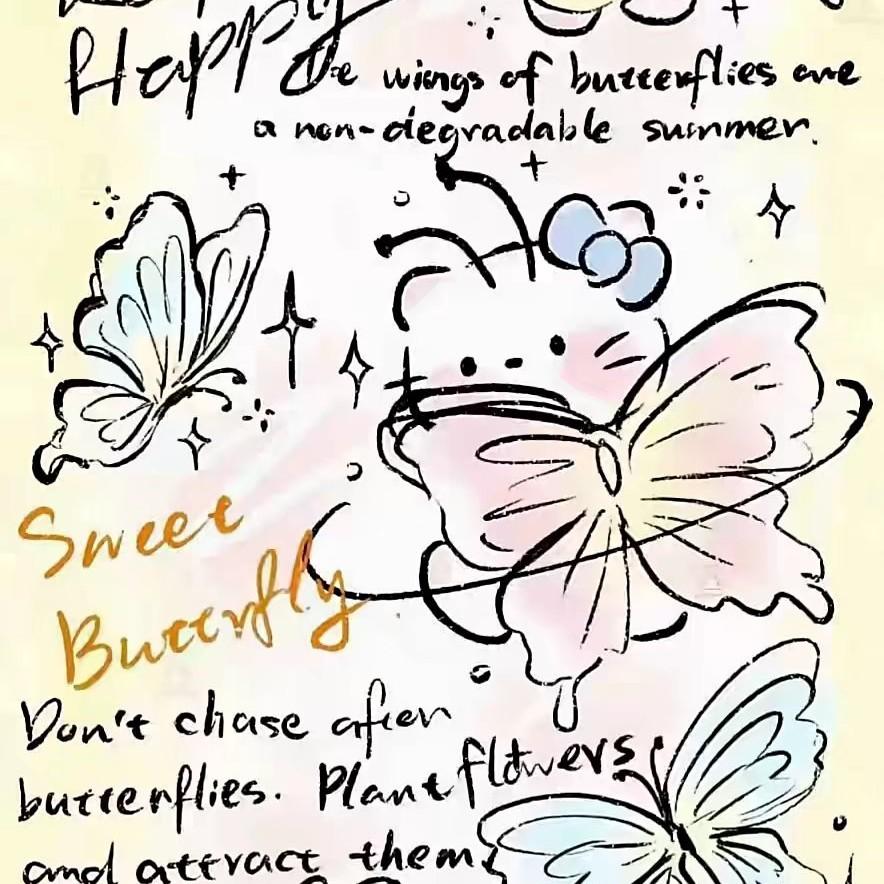 Happy
The wings of butterflies are
a non-degradable summer.
Sweet
Butterfly
Don't chase after
butterflies. Plant flowers
and attract them